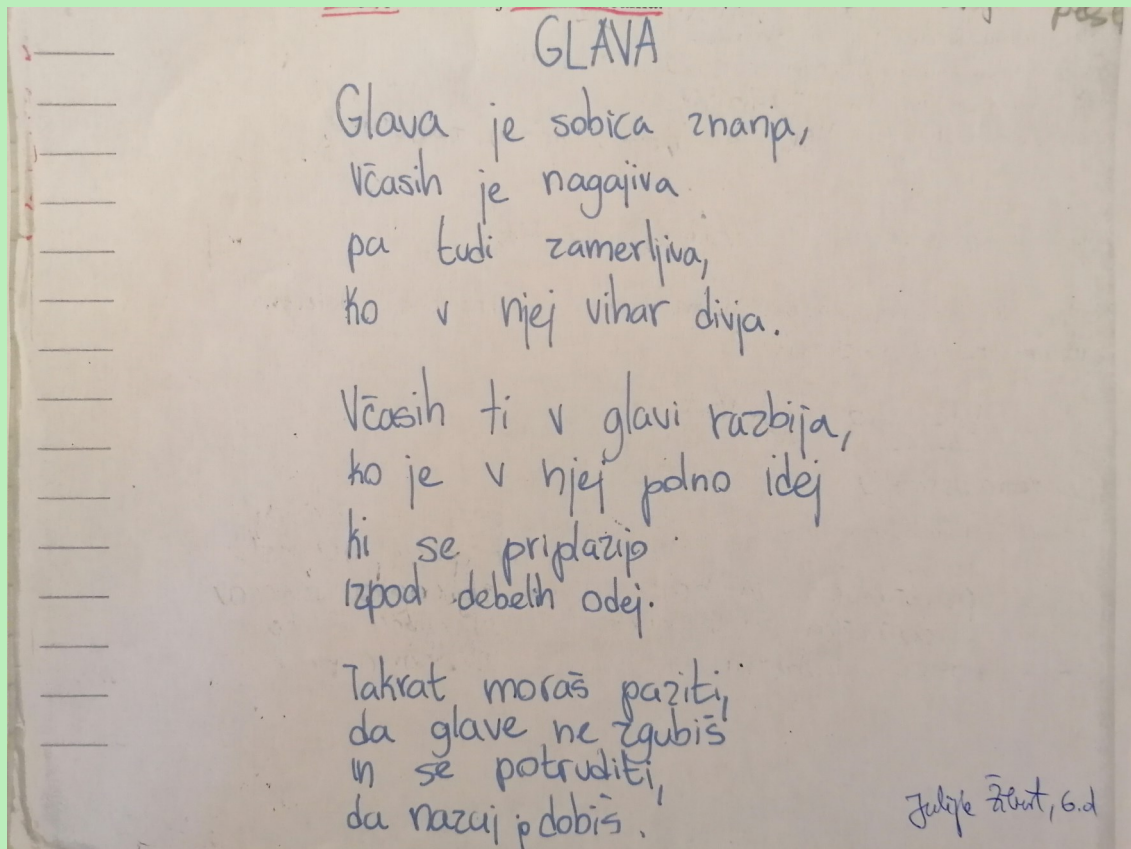 GLAVA
Glava je sobica znanja,
včasih je nagajiva
pa tudi zamerljiva,
ko v njej vihar divja.
Včasih ti v glavi razbija,
ko je v njej polno idej
ki se priplazijo
izpod debelih odej.
Takrat moraš paziti,
da glave ne zgubiš
in se potruditi,
da nazaj jo dobiš.
6.d